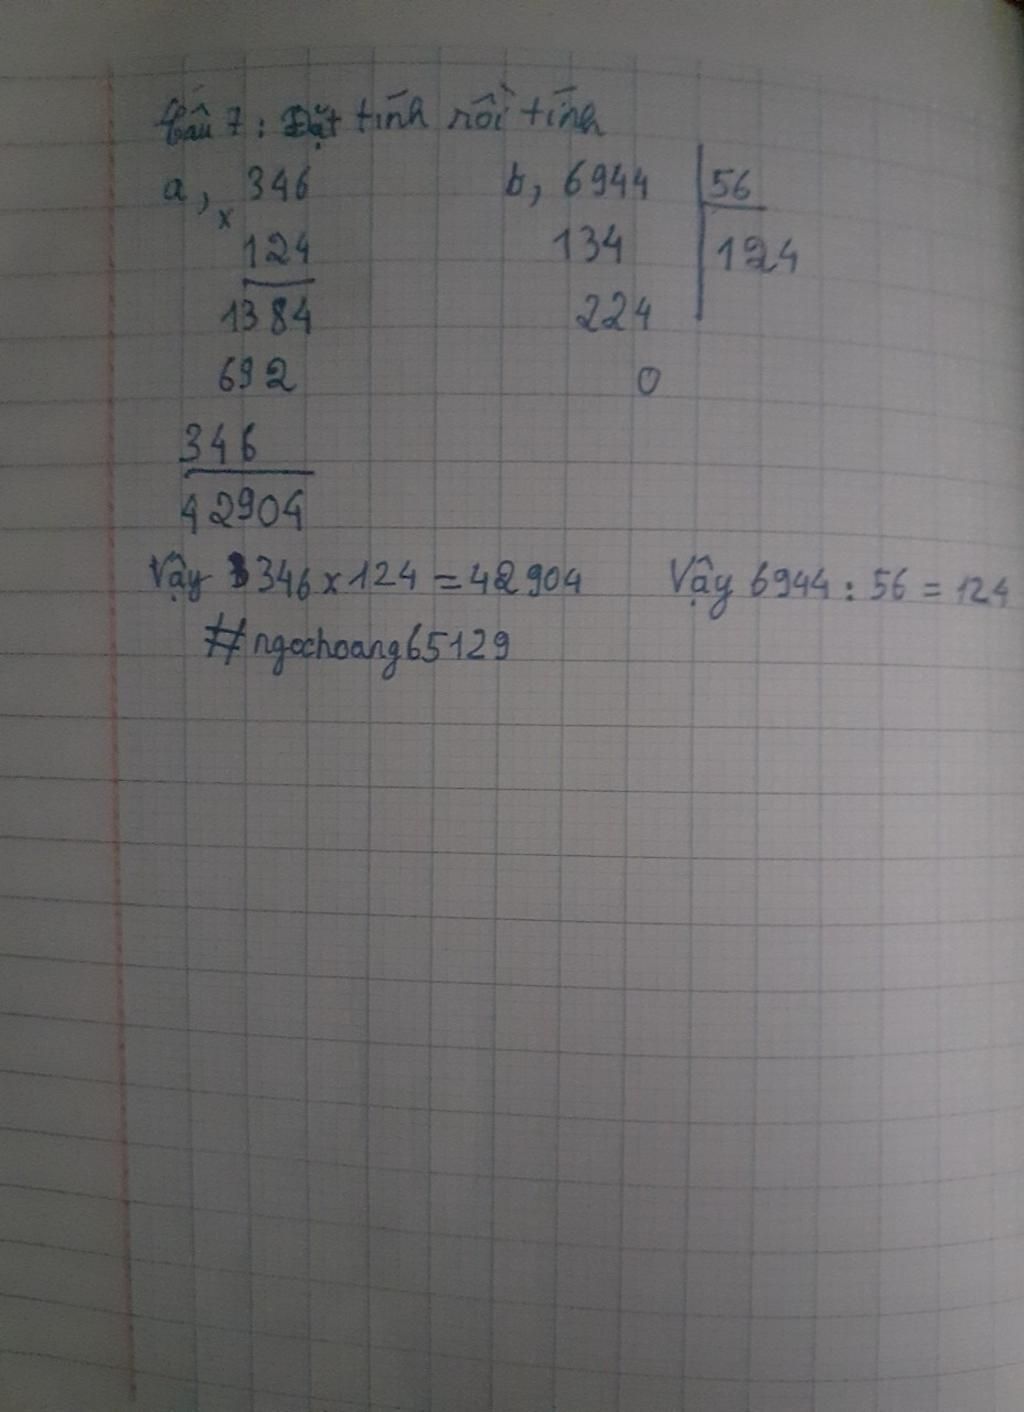 Câu 7: Đặt tính rồi tính
a, 346 b, 6944 56
x
124 134 124
1384 224
692 0
346
42904
Vậy 346 x 124 = 42904 Vậy 6944 : 56 = 124
#ngochoang65129